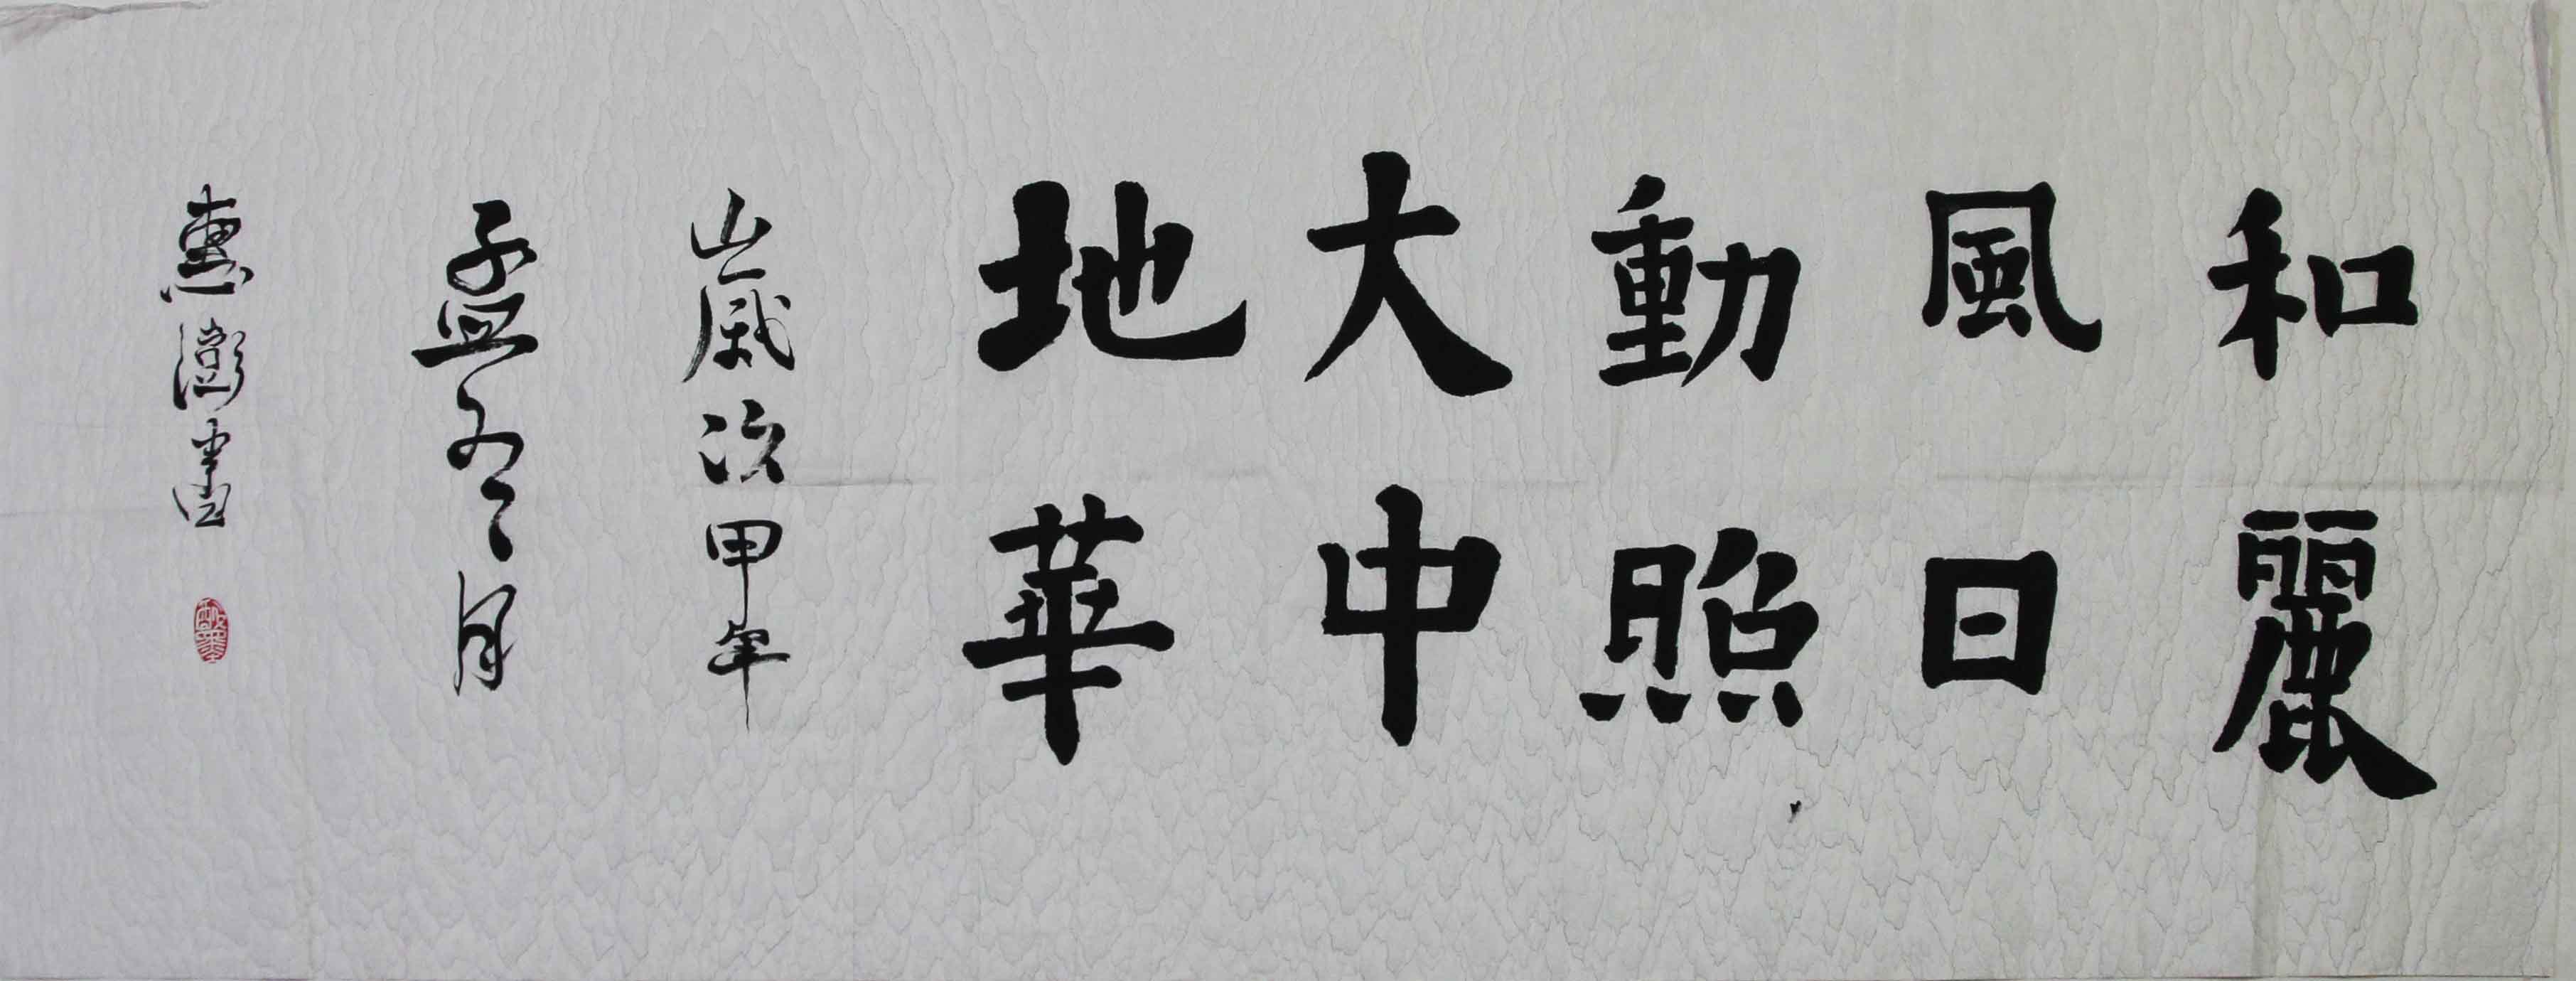 和風動大地
麗日照中華
歲次甲午
孟冬月
惠書